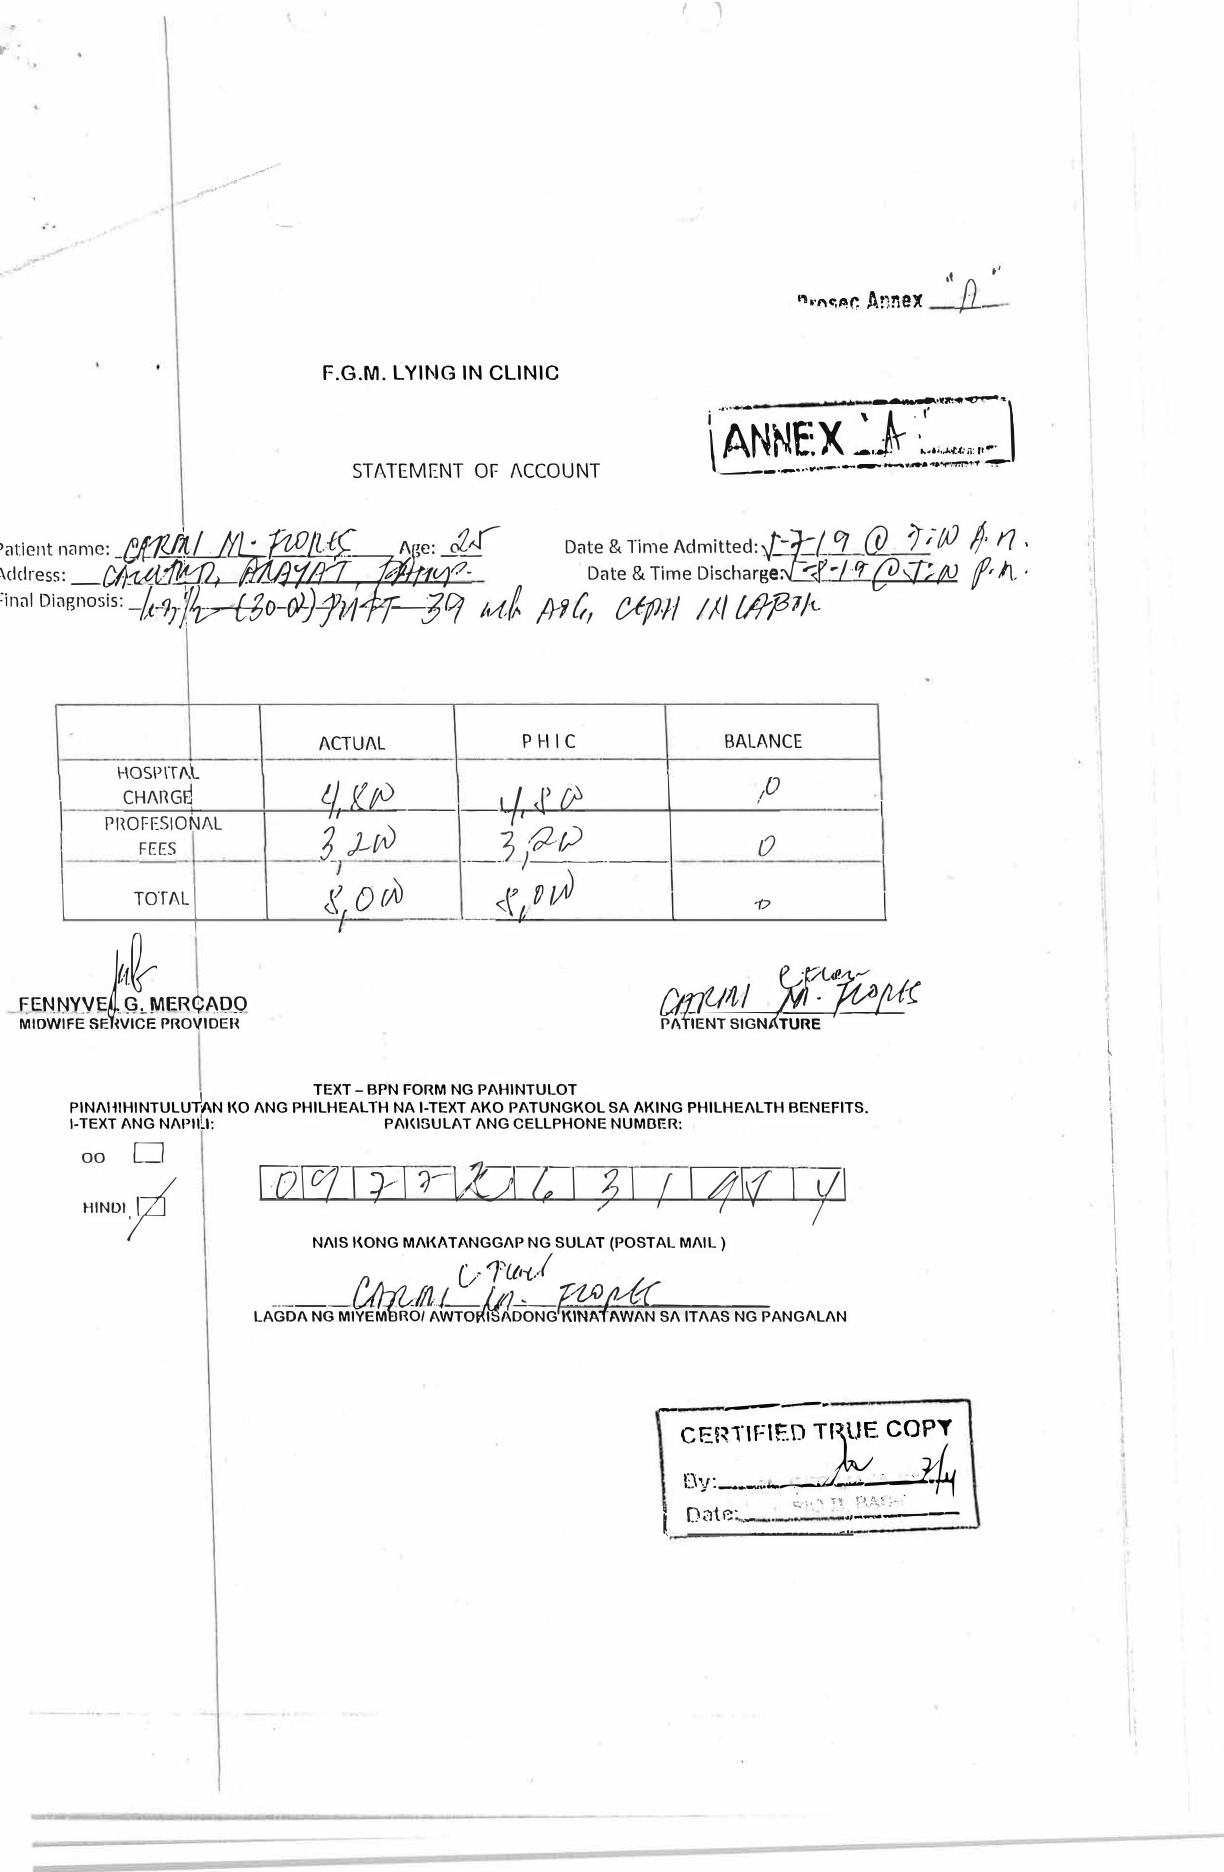 Prosec Annex "A"
F.G.M. LYING IN CLINIC
ANNEX "A"
STATEMENT OF ACCOUNT
Patient name: CARMI M. FLORES Age: 25 Date & Time Admitted: 5-7-19 @ 7:00 A.M.
Address: ARAYAT, Date & Time Discharge: 5-8-19 @ 5:00 P.M.
Final Diagnosis: 39 wks AOG, CEPH IN LABOR
ACTUAL PHIC BALANCE
HOSPITAL
CHARGE 4,800 4,800 0
PROFESIONAL
FEES 3,200 3,200 0
TOTAL 8,000 8,000 0
CARMI M. FLORES
FENNYVEL G. MERCADO
MIDWIFE SERVICE PROVIDER PATIENT SIGNATURE
TEXT – BPN FORM NG PAHINTULOT
PINAHIHINTULUTAN KO ANG PHILHEALTH NA I-TEXT AKO PATUNGKOL SA AKING PHILHEALTH BENEFITS.
I-TEXT ANG NAPILI: PAKISULAT ANG CELLPHONE NUMBER:
OO
HINDI
0977 631954
NAIS KONG MAKATANGGAP NG SULAT (POSTAL MAIL )
CARMI M. FLORES
LAGDA NG MIYEMBRO/ AWTORISADONG KINATAWAN SA ITAAS NG PANGALAN
CERTIFIED TRUE COPY
By:
Date: